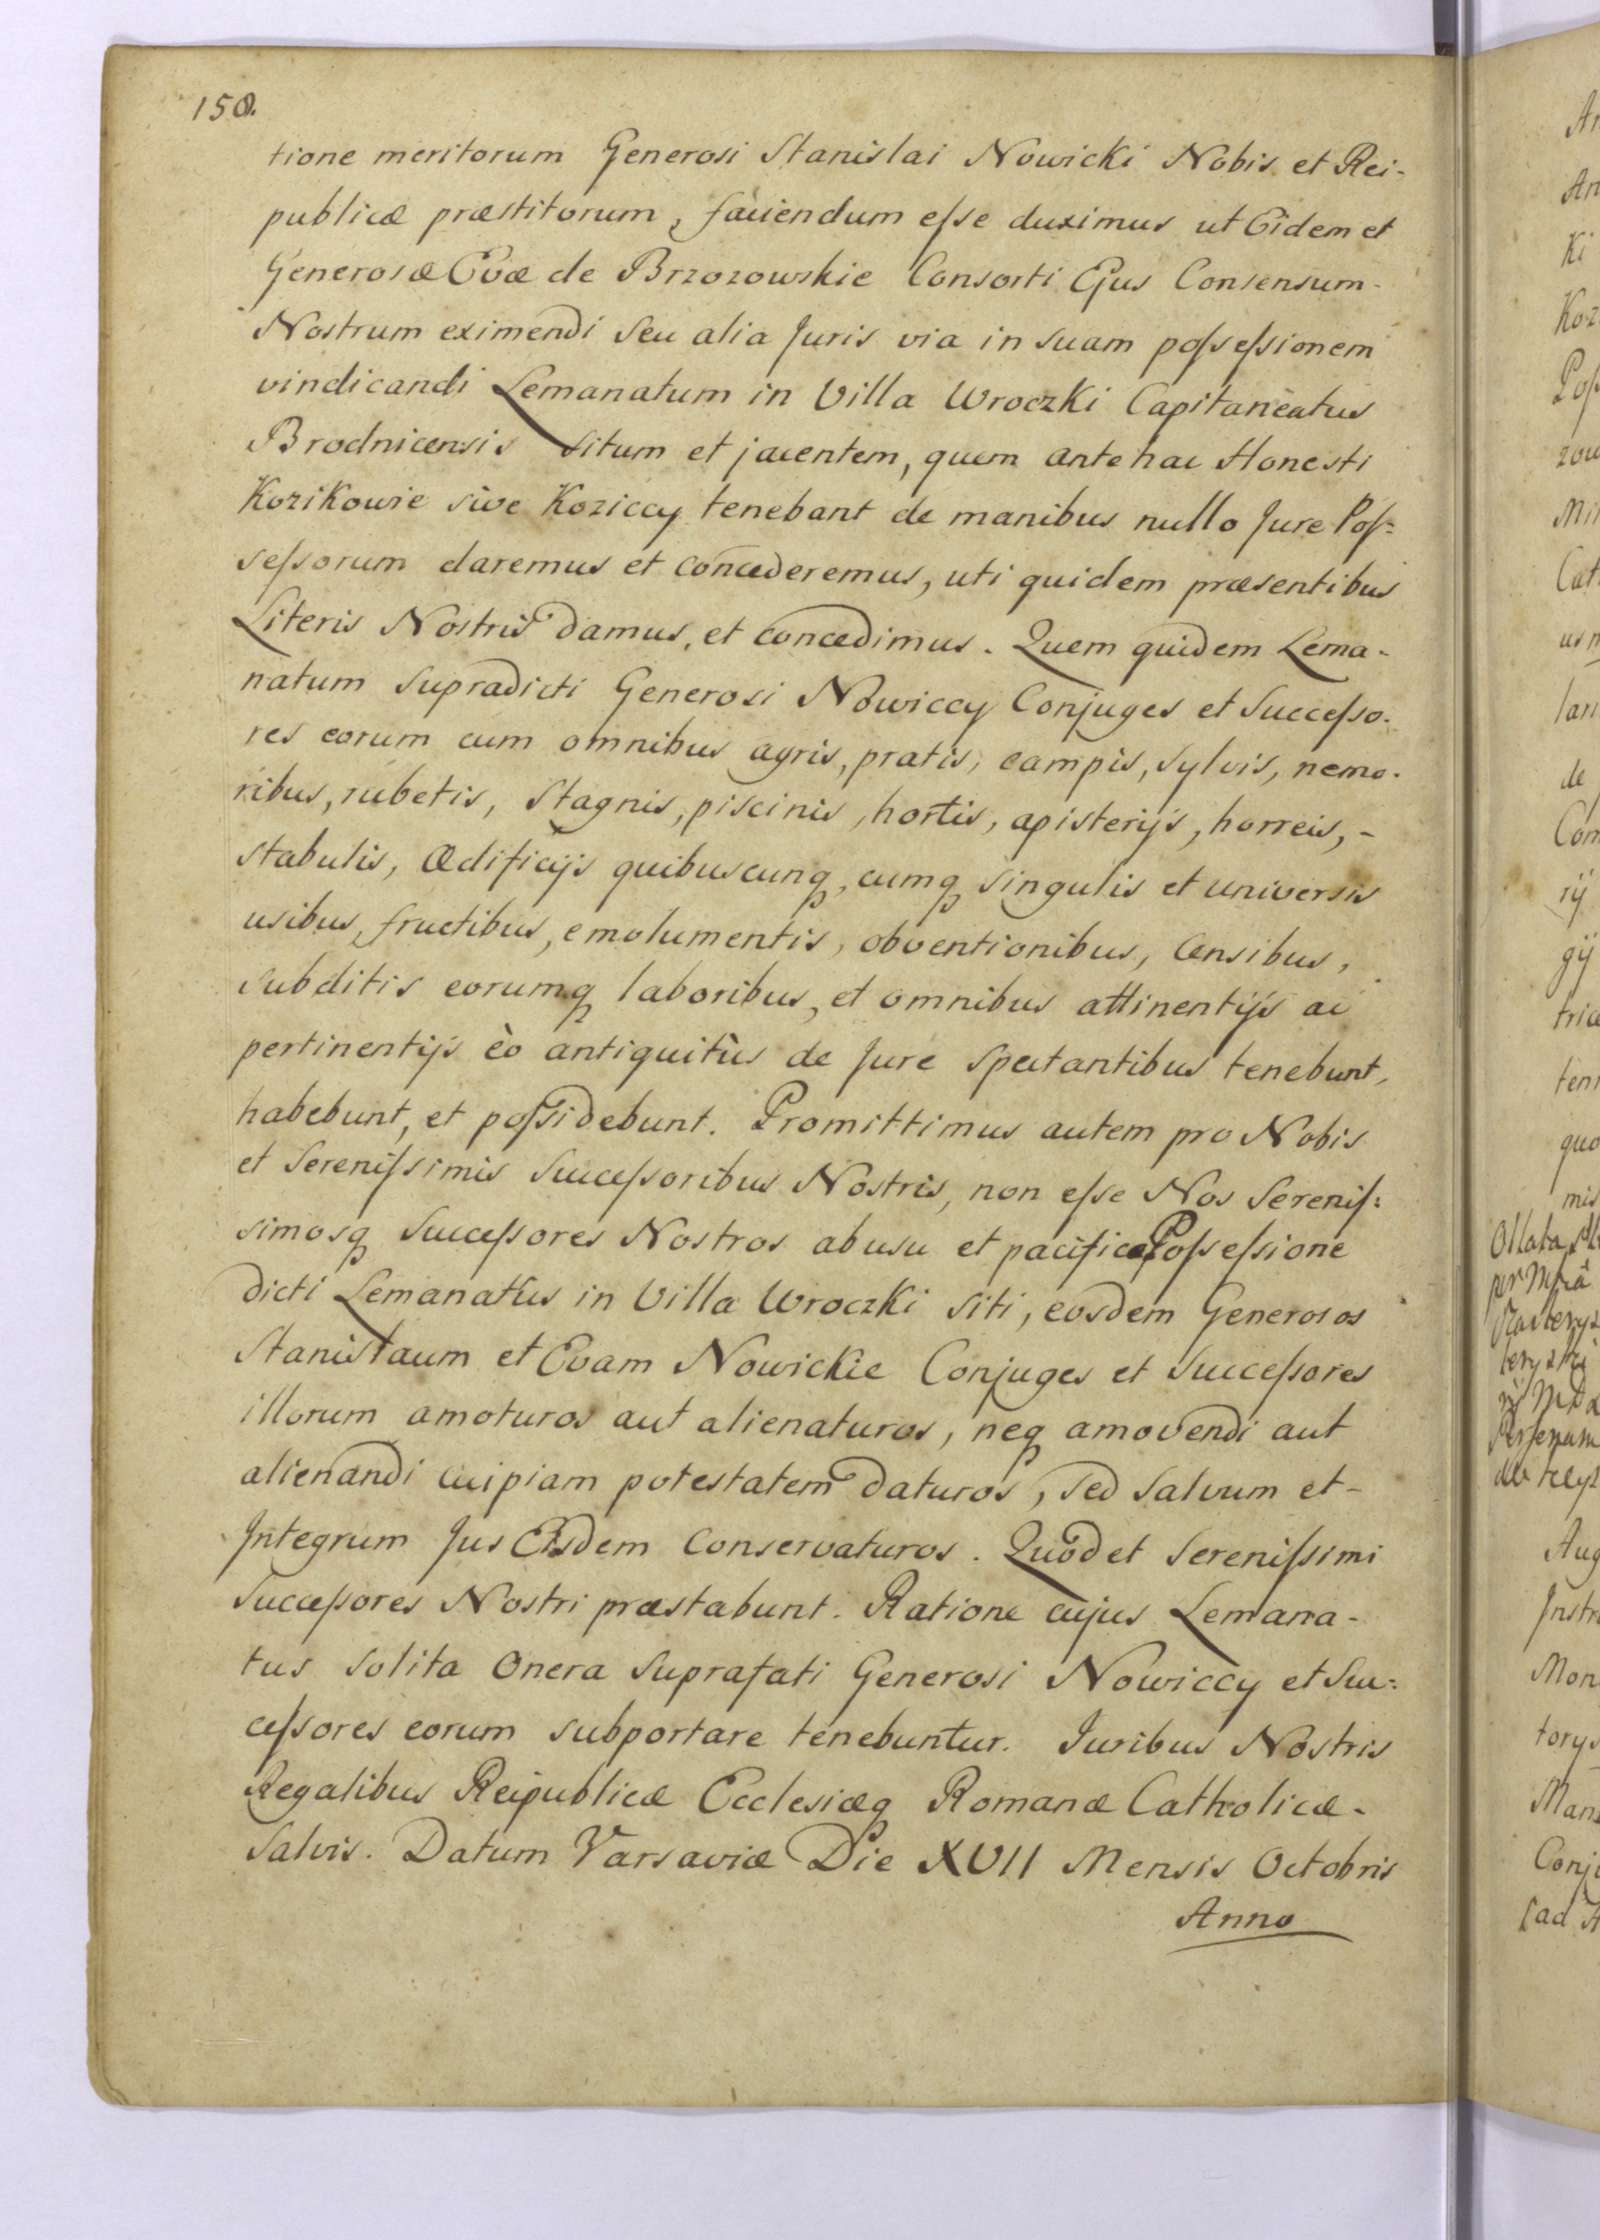 150.
tione meritorum Generosi Stanislai Nowicki Nobis et Rei-
publicæ præstitorum, faciendum eſse duximus ut Eidem et
Generosæ Evæ de Brzozowskie Consorti Ejus Consensum-
Nostrum eximendi seu alia Juris via in suam poſseſsionem
vindicandi Lemanatum in Villa Wroczki Capitaneatus
Brodnicensis situm et jacentem, quem antehac Honesti
Kozikowie sive Koziccy tenebant de manibus nullo Jure Poſ=
seſsorum daremus et concederemus, uti quidem præsentibus
Literis Nostris damus, et concedimus. Quem quidem Lema-
natum supradicti Generosi Nowiccy Conjuges et Succeſso-
res eorum cum omnibus agris, pratis, campis, sylvis, nemo-
ribus, rubetis, stagnis, piscinis, hortis, apisterijs, horreis, -
stabulis, ædificijs quibuscunq, cumq singulis et universis
usibus, fructibus, emolumentis, obventionibus, censibus,
subditis eorumq laboribus, et omnibus attinentijs ac
pertinentijs èo antiquitùs de Jure spectantibus tenebunt,
habebunt, et poſsidebunt. Promittimus autem pro Nobis
et Sereniſsimis Succeſsoribus Nostris, non eſse Nos Sereniſ=
simosq Succeſsores Nostros ab usu et pacifica Poſseſsione
dicti Lemanatus in Villa Wroczki siti, eosdem Generosos
Stanislaum et Evam Nowickie Conjuges et Succeſsores
illorum amoturos aut alienaturos, neq amovendi aut
alienandi cuipiam potestatem daturos, sed salvum et-
Integrum Jus Eisdem conservaturos. Quod et Sereniſsimi
Succeſsores Nostri præstabunt. Ratione cujus Lemana-
tus solita Onera suprafati Generosi Nowiccy et Suc=
ceſsores eorum subportare tenebuntur. Juribus Nostris
Regalibus Reipublicæ Ecclesiæq Romanæ Catholicæ-
salvis. Datum Varsaviæ Die XVII Mensis Octobris
Anno